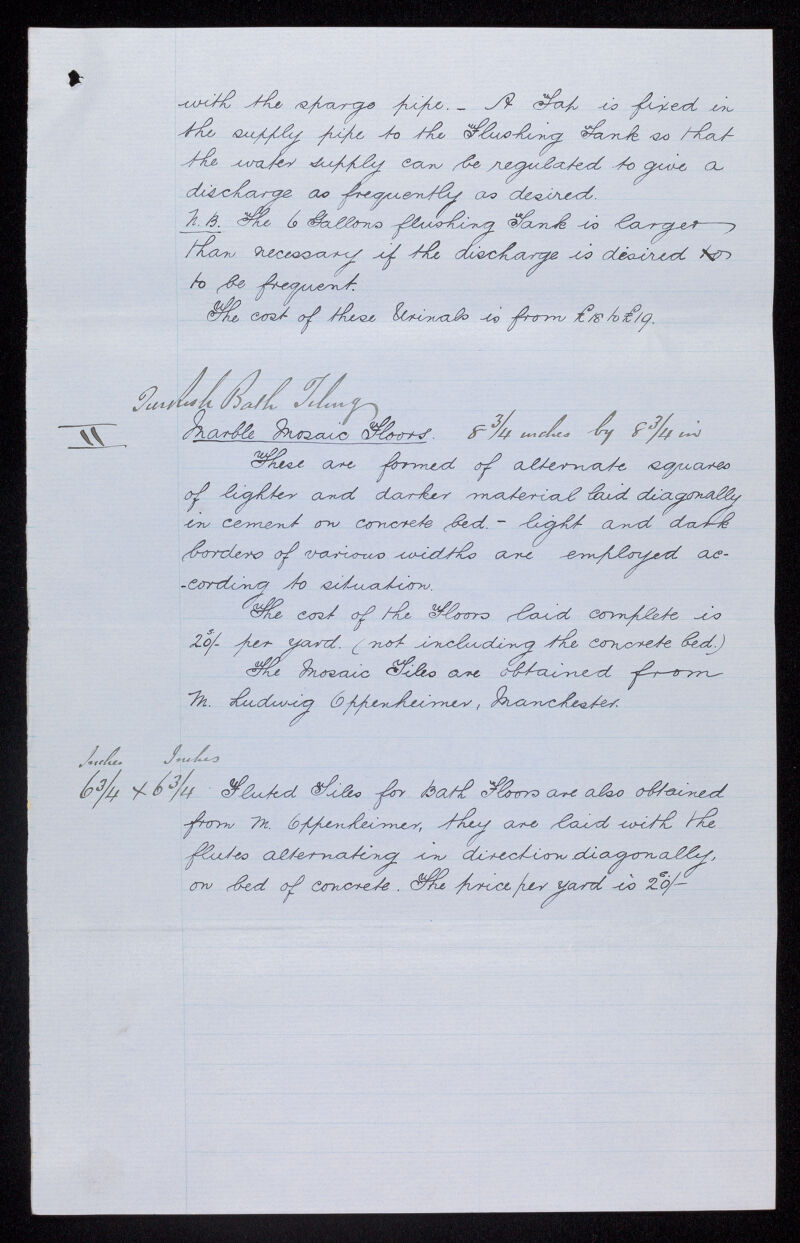 with the sparge pipe. - A Tap is fixed in
the supply pipe to the Flushing Tank so that
the water supply can be regulated to give a
discharge as frequently as desired.
N.B. The 6 Gallons flushing Tank is larger
than necessary if the discharge is desired to
to be frequent.
The cost of these Urinals is from £18 to £19.
Turkish Bath Tiling
II
Marble Mosaic Floors. 8 3/4 inches by 8 3/4 in
These are formed of alternate squares
of lighter and darker material laid diagonally
in cement on concrete bed. - light and dark
borders of various widths are employed ac-
-cording to situation.
The cost of the Floors laid complete is
20/- per yard. (not including the concrete bed.)
The Mosaic Tiles are obtained from
M. Ludwig Oppenheimer, Manchester.
Inches Inches
6 3/4 x 6 3/4 Fluted Tiles for Bath Floors are also obtained
from M. Oppenheimer, they are laid with the
flutes alternating in direction diagonally,
on bed of concrete. The price per yard is 20/-